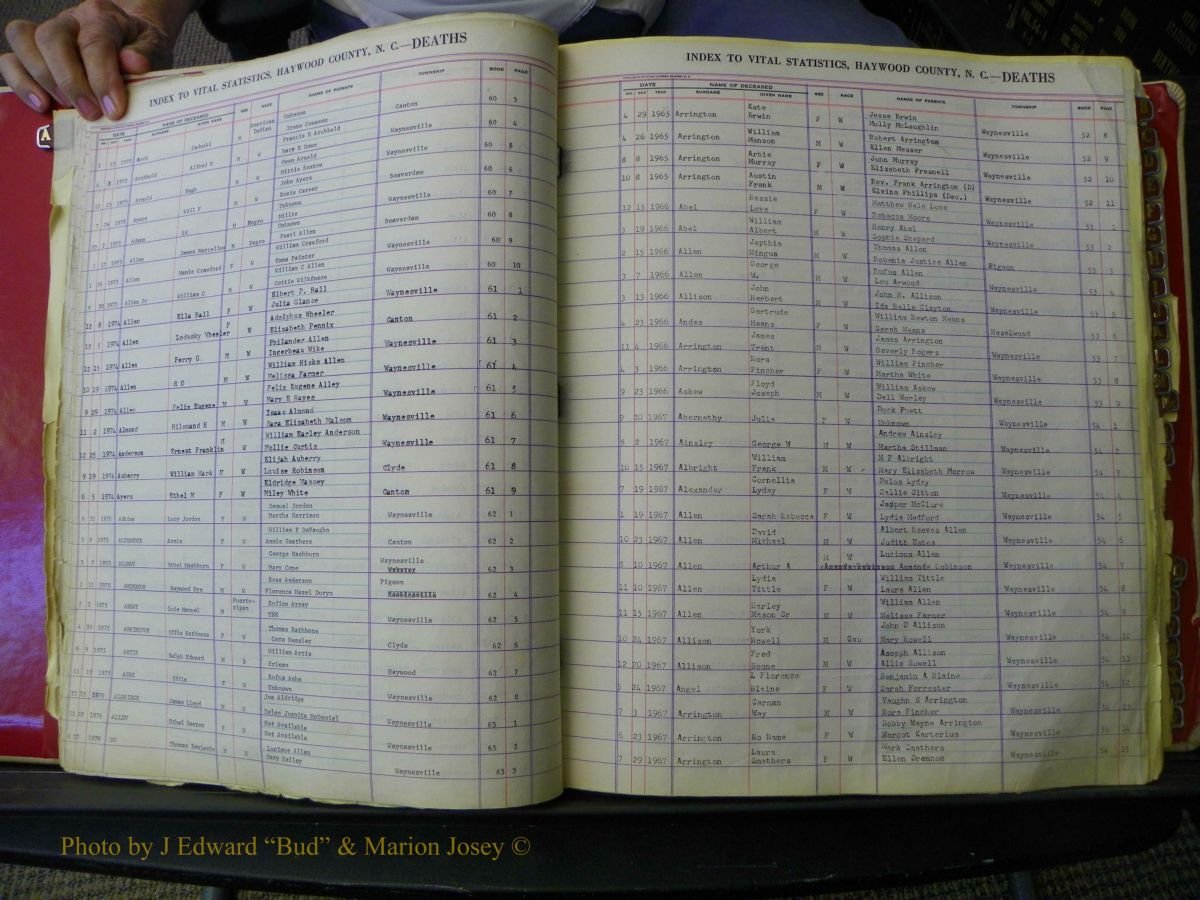 INDEX TO VITAL STATISTICS, HAYWOOD COUNTY, N. C.—DEATHS
DATE NAME OF DECEASED SEX RACE NAMES OF PARENTS TOWNSHIP BOOK PAGE
SURNAME GIVEN NAME
American Indian Unknown Canton 60 3
Irene Conseen
Archbold Alfred E M W Francis H Archbold Waynesville 60 4
Mary E Howe
Arnold Hugh M W Owen Arnold Waynesville 60 5
Mittie Sexton
Ayers Will F M W John Ayers Beaverdam 60 6
Rosie Carver
Adams Ed M Negro Unknown Waynesville 60 7
Millie
Allen James Marcellus M Negro Unknown Beaverdam 60 8
Pearl Allen
Allen Mamie Crawford F W William Crawford Waynesville 60 9
Emma Painter
Allen Jr William C M W William C Allen Waynesville 60 10
Cottie Wilkinson
12 8 1974 Allen Ella Ball F W Elbert P. Ball Waynesville 61 1
Julia Glance
12 5 1974 Allen Lodusky Wheeler F W Adolphus Wheeler Canton 61 2
Elizabeth Pennix
12 15 1974 Allen Perry G. M W Philander Allen Waynesville 61 3
Ingerbeau Wike
10 19 1974 Allen R O M W William Hicks Allen Waynesville 61 4
Melissa Farmer
9 29 1974 Alley Felix Eugene M W Felix Eugene Alley Waynesville 61 5
Mary E Hayes
11 2 1974 Almond Hilsmand H M W Isaac Almond Waynesville 61 6
Sara Elizabeth Malcom
12 25 1974 Anderson Ernest Franklin M W William Earley Anderson Waynesville 61 7
Mollie Curtis
9 19 1974 Auberry William Mark M W Elijah Auberry Clyde 61 8
Louise Robinson
6 5 1974 Ayers Ethel M F W Eldridge Massey Canton 61 9
Miley White
1975 Adkins Lucy Jordon F W Samuel Jordon Waynesville 62 1
Martha Harrison
1975 ALEXANDER Annie F W William F DeVaughn Canton 62 2
Annie Smathers
1975 ALLMAN Ethel Mashburn F W George Mashburn Waynesville 62 3
Mary Cope
2 11 1975 ANDERSON Raymond M W Ross Anderson Pigeon 62 4
Florence Hazel Duryn
7 2 1975 ARRAY Luis Manuel M Puerto-rigen Rufino Array Waynesville 62 5
UNK
4 20 1975 ARRINGTON Effie Rathbone F W Thomas Rathbone Clyde 62 6
Cora Messley
1975 ARTIS Ralph Edward M B William Artis Haywood 62 7
Erlean
1975 ASHE Effie F W Rufus Ashe Waynesville 62 8
Unknown
1976 ALDRIDGE James Lloyd M W Joe Aldridge Waynesville 63 1
Helen Juanita McDaniel
1976 ALLEN Ethel W Not Available Waynesville 63 2
Not Available
1976 DO Thomas Benjamin M W Lucious Allen Waynesville 63 3
Mary Kelley
INDEX TO VITAL STATISTICS, HAYWOOD COUNTY, N. C.—DEATHS
DATE NAME OF DECEASED SEX RACE NAMES OF PARENTS TOWNSHIP BOOK PAGE
MO. DAY YEAR SURNAME GIVEN NAME
4 29 1965 Arrington Kate Erwin F W Jesse Erwin Waynesville 52 8
Molly McLaughlin
4 26 1965 Arrington William Manson M W Robert Arrington Waynesville 52 9
Ellen Messer
8 8 1965 Arrington Arbie Murray F W John Murray Waynesville 52 10
Elizabeth Presnell
10 8 1965 Arrington Austin Frank M W Rev. Frank Arrington (D) Waynesville 52 11
Elvina Phillips (Dec.)
12 15 1966 Abel Bessie Love F W Matthew Hale Love Waynesville 53 1
Rebecca Moore
3 19 1966 Abel William Albert M W Honey Abel Waynesville 53 2
Sophie Shepard
2 15 1966 Allen Jepthia Mingus M W Thomas Allen Pigeon 53 3
Robenia Justice Allen
3 7 1966 Allen George W. M W Rufus Allen Waynesville 53 4
Lou Arwood
3 13 1966 Allison John Herbert M W John H. Allison Waynesville 53 5
Ida Bells Clayton
4 23 1966 Andes Gertrude Means F W William Newton Means Hazelwood 53 6
Sarah Means
11 4 1966 Arrington James Trent M W James Arrington Waynesville 53 7
Beverly Rogers
4 3 1966 Arrington Nora Fincher F W William Fincher Waynesville 53 8
Martha White
9 23 1966 Askew Floyd Joseph M W William Askew Waynesville 53 9
Dell Worley
9 20 1967 Abernethy Julia F W Dock Puett Waynesville 54 1
Unknown
5 2 1967 Ainsley George W M W Andrew Ainsley Waynesville 54 2
Martha Stillman
10 15 1967 Albright William Frank M W M P Albright Waynesville 54 3
Mary Elizabeth Morrow
7 19 1967 Alexander Cornellia Lyday F W Delos Lyday Waynesville 54 4
Sallie Sitton
1 19 1967 Allen Sarah Rebecca F W Jasper McClure Waynesville 54 5
Lydia Medford
10 23 1967 Allen David Michael M W Albert Reeves Allen Waynesville 54 6
Judith Estes
8 10 1967 Allen Arthur A M W Lucious Allen Waynesville 54 7
Amanda Robinson
11 10 1967 Allen Lydia Tittle F W William Tittle Waynesville 54 8
Laura Allen
11 15 1967 Allen Harley Mason Sr M W William Allen Waynesville 54 9
Melissa Farmer
10 24 1967 Allison York Howell M Cau John D Allison Waynesville 54 10
Mary Howell
12 20 1967 Allison Fred Boone M W Asoph Allison Waynesville 54 11
Allie Howell
5 24 1967 Angel L Florence Blaine F W Benjamin A Blaine Waynesville 54 12
Sarah Forrester
7 3 1967 Arrington Carmen Way M W Vaughn G Arrington Waynesville 54 13
Nora Fincher
6 23 1967 Arrington No Name F W Bobby Wayne Arrington Waynesville 54 14
Margot Karterius
7 29 1967 Arrington Laura Smathers F W Mark Smathers Waynesville 54 15
Ellen Drennon
A
Photo by J Edward “Bud” & Marion Josey ©